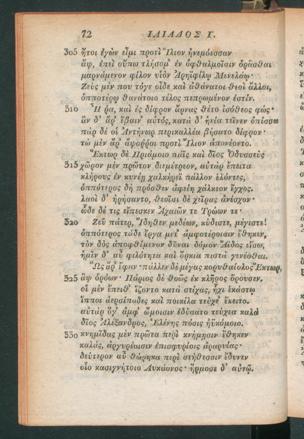 72 ΙΛΙΑΔΟΣ Γ.
305 ἤτοι ἐγὼν εἶμι προτὶ Ἴλιον ἠνεμόεσσαν
ἄψ, ἐπεὶ οὔπω τλήσομ᾽ ἐν ὀφθαλμοῖσιν ὁρᾶσθαι
μαρνάμενον φίλον υἱὸν Ἀρηϊφίλῳ Μενελάῳ·
Ζεὺς μέν που τόγε οἶδε καὶ ἀθάνατοι θεοὶ ἄλλοι,
ὁπποτέρῳ θανάτοιο τέλος πεπρωμένον ἐστίν.
310 Ἦ ῥα, καὶ ἐς δίφρον ἄρνας θέτο ἰσόθεος φώς·
ἂν δ᾽ ἄρ᾽ ἔβαιν᾽ αὐτός, κατὰ δ᾽ ἡνία τεῖνεν ὀπίσσω·
πὰρ δέ οἱ Ἀντήνωρ περικαλλέα βήσατο δίφρον·
τὼ μὲν ἄρ᾽ ἄψοῤῥοι προτὶ Ἴλιον ἀπονέοντο.
Ἕκτωρ δὲ Πριάμοιο πάϊς καὶ δῖος Ὀδυσσεὺς
315 χῶρον μὲν πρῶτον διεμέτρεον, αὐτὰρ ἔπειτα
κλήρους ἐν κυνέῃ χαλκήρεϊ πάλλον ἑλόντες,
ὁππότερος δὴ πρόσθεν ἀφείη χάλκεον ἔγχος.
λαοὶ δ᾽ ἠρήσαντο, θεοῖσι δὲ χεῖρας ἀνέσχον·
ὧδε δέ τις εἴπεσκεν Ἀχαιῶν τε Τρώων τε·
320 Ζεῦ πάτερ, Ἴδηθεν μεδέων, κύδιστε, μέγιστε!
ὁππότερος τάδε ἔργα μετ᾽ ἀμφοτέροισιν ἔθηκεν,
τὸν δὸς ἀποφθίμενον δῦναι δόμον Ἄϊδος εἴσω,
ἡμῖν δ᾽ αὖ φιλότητα καὶ ὅρκια πιστὰ γενέσθαι.
Ὣς ἄρ᾽ ἔφαν· πάλλεν δὲ μέγας κορυθαίολος Ἕκτωρ,
325 ἂψ ὁρόων· Πάριος δὲ θοῶς ἐκ κλῆρος ὄρουσεν.
οἱ μὲν ἔπειθ᾽ ἵζοντο κατὰ στίχας, ἧχι ἑκάστῳ
ἵπποι ἀερσίποδες καὶ ποικίλα τεύχε᾽ ἔκειτο.
αὐτὰρ ὅγ᾽ ἀμφ᾽ ὤμοισιν ἐδύσατο τεύχεα καλὰ
δῖος Ἀλέξανδρος, Ἑλένης πόσις ἠϋκόμοιο.
330 κνημῖδας μὲν πρῶτα περὶ κνήμῃσιν ἔθηκεν
καλάς, ἀργυρέοισιν ἐπισφυρίοις ἀραρυίας·
δεύτερον αὖ θώρηκα περὶ στήθεσσιν ἔδυνεν
οἷο κασιγνήτοιο Λυκάονος· ἥρμοσε δ᾽ αὐτῷ.